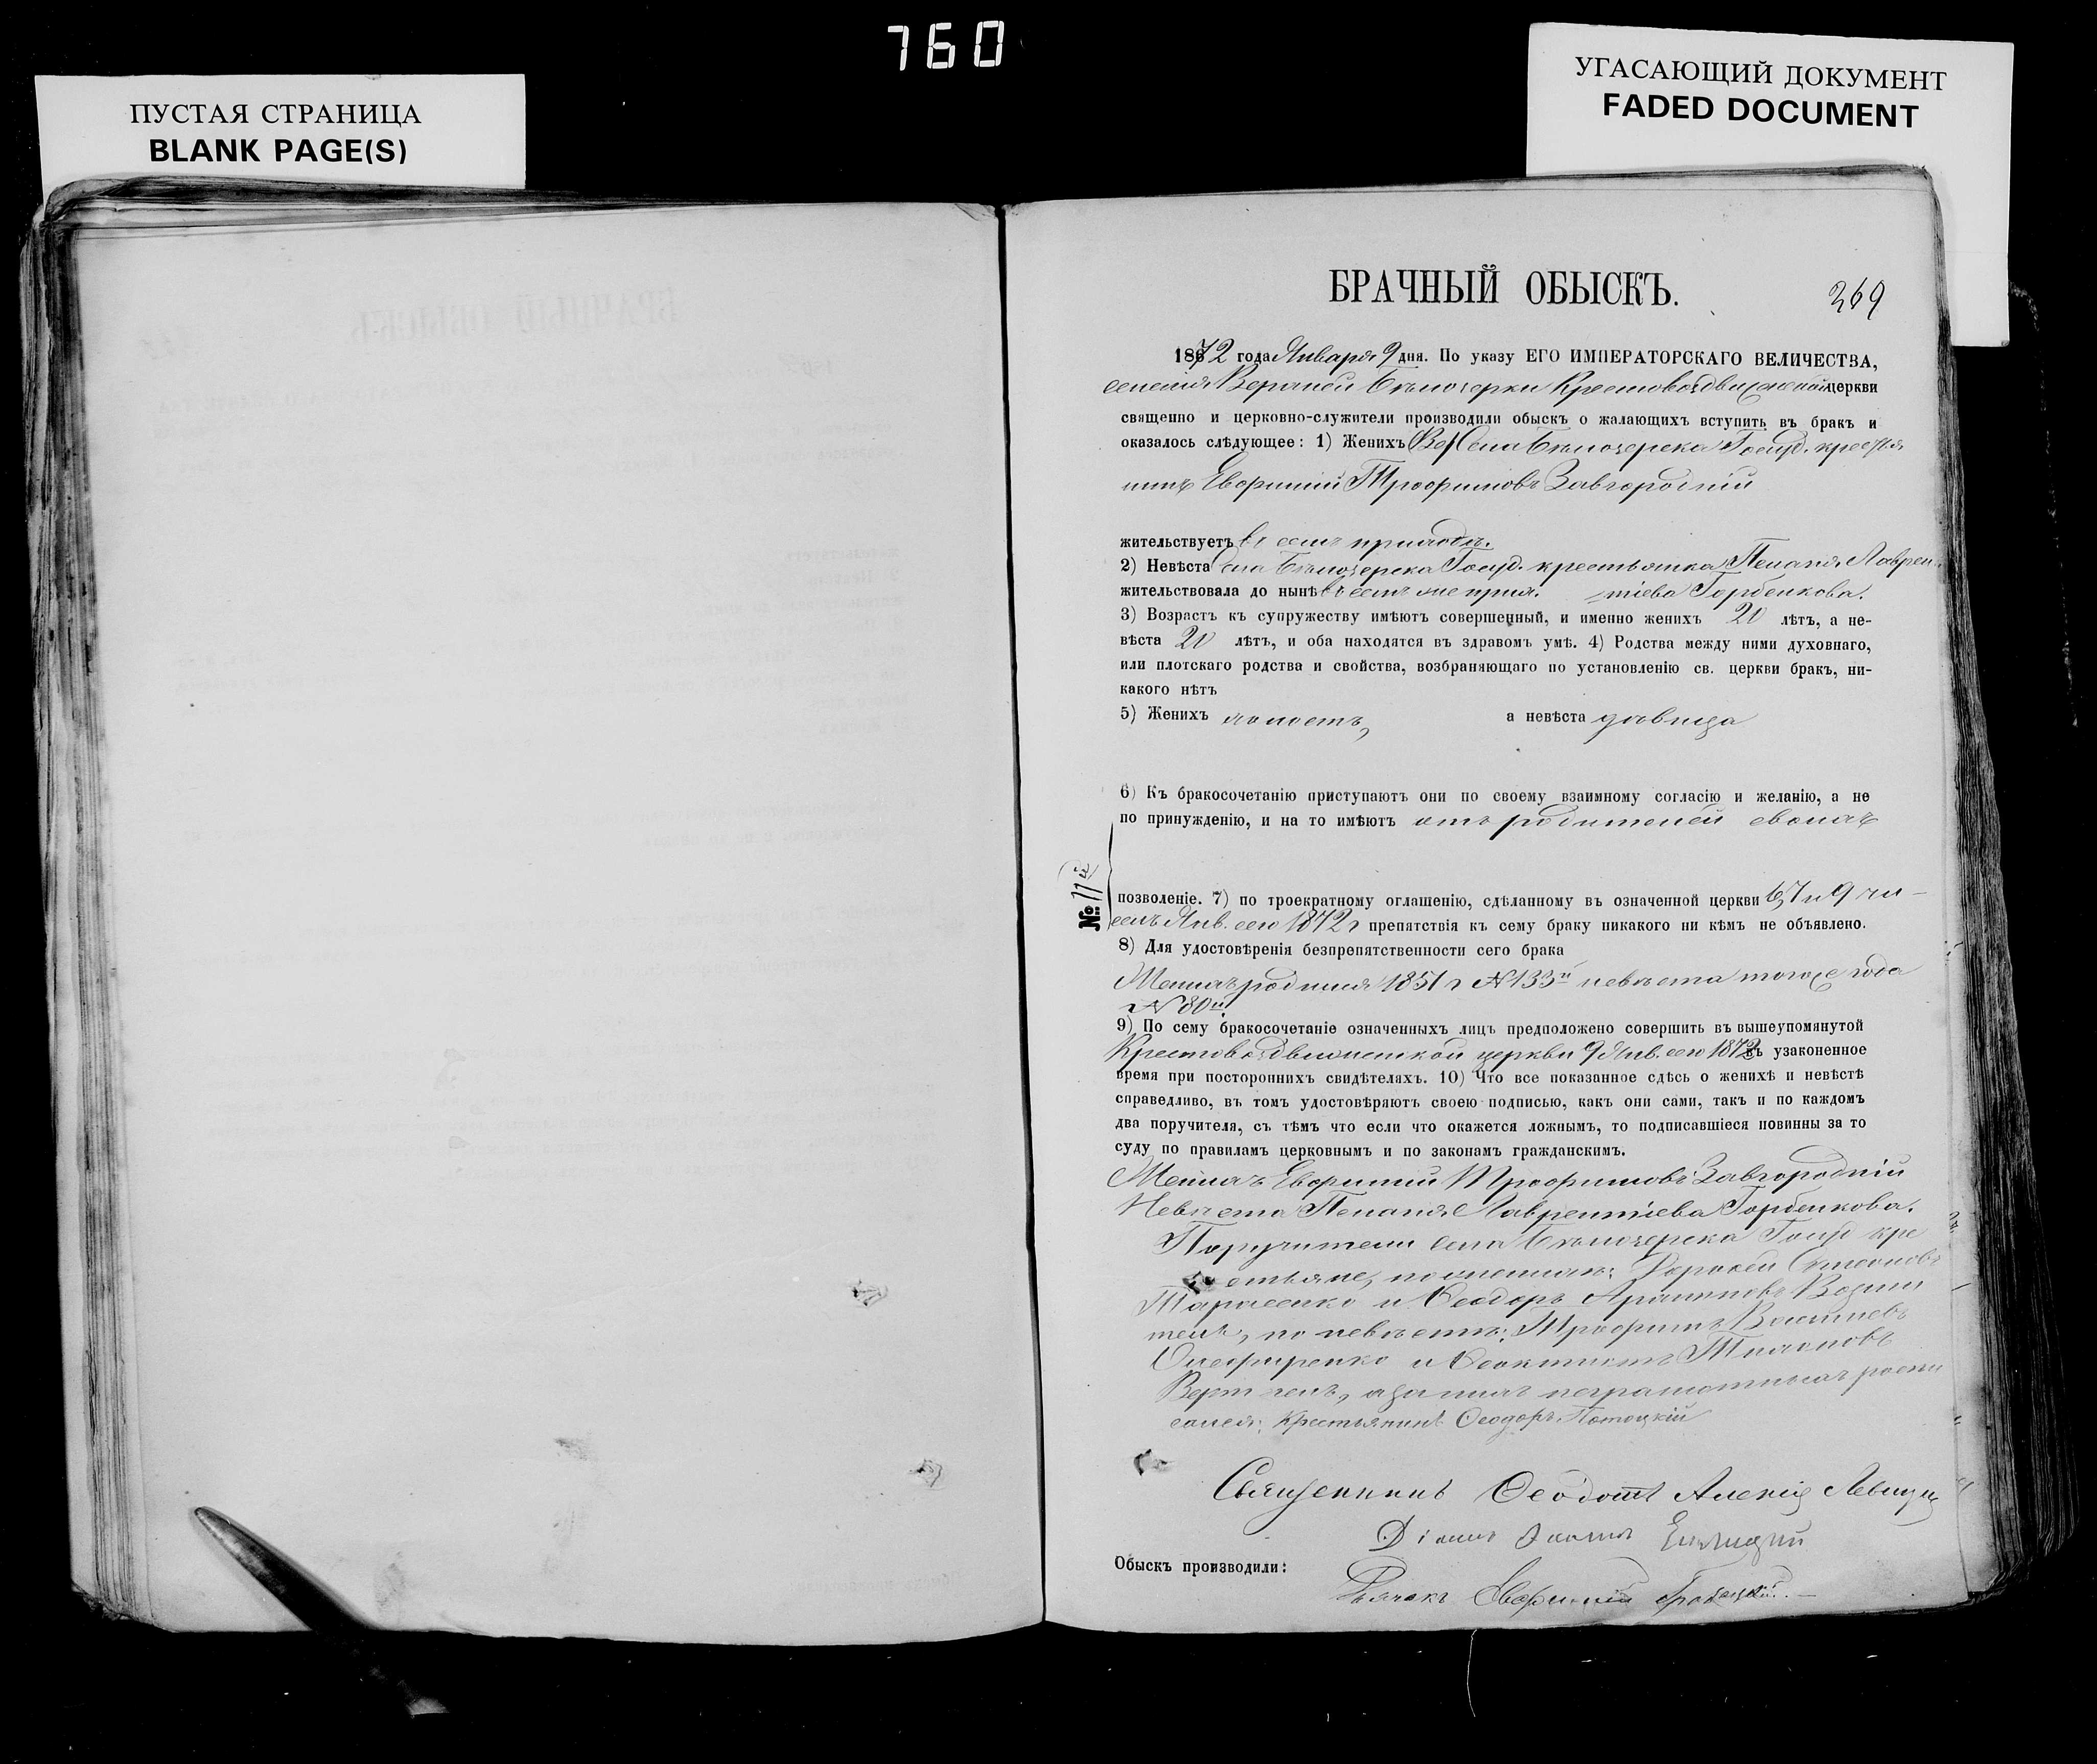 760
ПУСТАЯ СТРАНИЦА
BLANK PAGE(S)
УГАСАЮЩИЙ ДОКУМЕНТ
FADED DOCUMENT
БРАЧНЫЙ ОБЫСКЪ.
369
1872 года Января 9 дня. По указу ЕГО ИМПЕРАТОРСКАГО ВЕЛИЧЕСТВА,
селенія Верхней Бѣлозерки Крестовоздвиженской церкви
священно и церковно-служители производили обыскъ о жалающихъ вступить въ бракъ и
оказалось слѣдующее: 1) Женихъ Вер. села Бѣлозерска Госуд. крестья
нинъ Евфимій Трофимовъ Завгородній
жительствуетъ въ семъ приходѣ.
2) Невѣста села Бѣлозерска Госуд. крестьянка Пелагія Лаврен-
жительствовала до нынѣ въ семъ же прих. тіева Горбенкова.
3) Возрастъ къ супружеству имѣютъ совершенный, и именно женихъ 20 лѣтъ, а не-
вѣста 20 лѣтъ, и оба находятся въ здравомъ умѣ. 4) Родства между ними духовнаго,
или плотскаго родства и свойства, возбраняющаго по установленію св. церкви бракъ, ни-
какого нѣтъ
5) Женихъ холостъ, а невѣста дѣвица
6) Къ бракосочетанію приступаютъ они по своему взаимному согласію и желанію, а не
по принужденію, и на то имѣютъ отъ родителей своихъ
№ 11й
позволеніе. 7) по троекратному оглашенію, сдѣланному въ означенной церкви 6, 7 и 9 чи-
селъ Янв. сего 1872 г. препятствія къ сему браку никакого ни кѣмъ не объявлено.
8) Для удостовѣренія безпрепятственности сего брака
Женихъ родился 1851 г № 133й невѣста тогоже года
№ 80й
9) По сему бракосочетаніе означенныхъ лицъ предположено совершить въ вышеупомянутой
Крестовоздвиженской церкви 9 Янв. сего 1872 въ узаконенное
время при постороннихъ свидѣтеляхъ. 10) Что все показанное сдѣсь о женихѣ и невѣстѣ
справедливо, въ томъ удостовѣряютъ своею подписью, какъ они сами, такъ и по каждомъ
два поручителя, съ тѣмъ что если что окажется ложнымъ, то подписавшіеся повинны за то
суду по правиламъ церковнымъ и по законамъ гражданскимъ.
Женихъ Евфимій Трофимовъ Завгородній
Невѣста Пелагія Лаврентіева Горбенкова.
Поручители села Бѣлозерска Госуд кре
стьяне, по женихѣ: Дорофей Симеоновъ
Тарасенко и Ѳеодоръ
по невѣстѣ: Трофимъ Васильевъ
Онофриенко и Ѳеоктистъ Тихоновъ
а за нихъ неграмотныхъ роспи
сался: Крестьянинъ Ѳеодоръ Потоцкій
Священникъ Ѳеодотъ Алексіев Левицкій
Діаконъ
Обыскъ производили:
Дьячекъ Евфимій